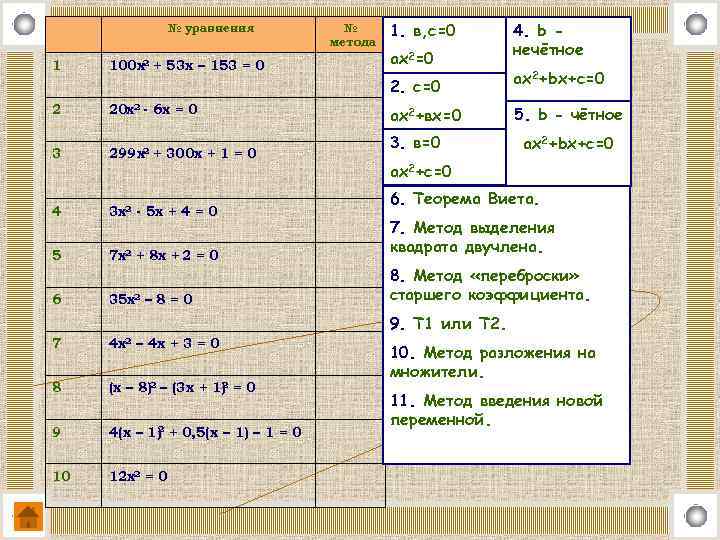 № уравнения
№ метода
1 100х² + 53х – 153 = 0
2 20х² - 6х = 0
3 299х² + 300х + 1 = 0
4 3х² - 5х + 4 = 0
5 7х² + 8х + 2 = 0
6 35х² – 8 = 0
7 4х² – 4х + 3 = 0
8 (х – 8)² – (3х + 1)² = 0
9 4(х – 1)² + 0,5(х – 1) – 1 = 0
10 12х² = 0
1. в,с=0
ах²=0
2. с=0
ах²+вх=0
3. в=0
ах²+с=0
4. b -
нечётное
ax²+bx+c=0
5. b - чётное
ax²+bx+c=0
6. Теорема Виета.
7. Метод выделения
квадрата двучлена.
8. Метод «переброски»
старшего коэффициента.
9. Т1 или Т2.
10. Метод разложения на
множители.
11. Метод введения новой
переменной.